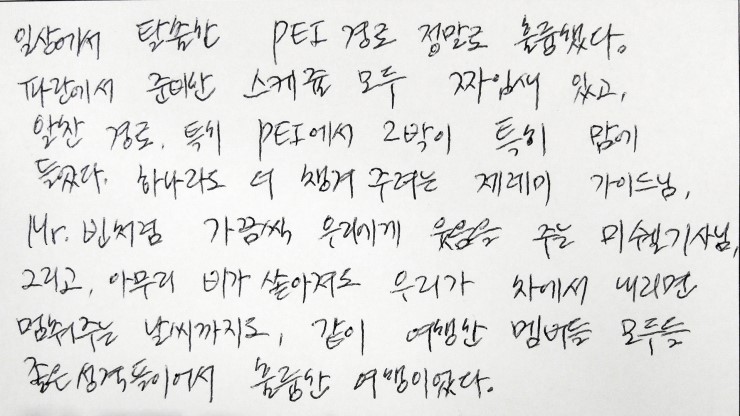 일상에서 탈출한 PEI 경로 정말로 훌륭했다.
파란에서 준비한 스케쥴 모두 짜임새 있고,
알찬 경로, 특히 PEI에서 2박이 특히 맘에
들었다. 하나라도 더 챙겨 주려는 제레미 가이드님,
Mr. 빈처럼 가끔씩 우리에게 웃음을 주는 미쉘기사님,
그리고, 아무리 비가 쏟아져도 우리가 차에서 내리면
멈춰주는 날씨까지도, 같이 여행한 멤버들 모두들
좋은 성격들이어서 훌륭한 여행이었다.